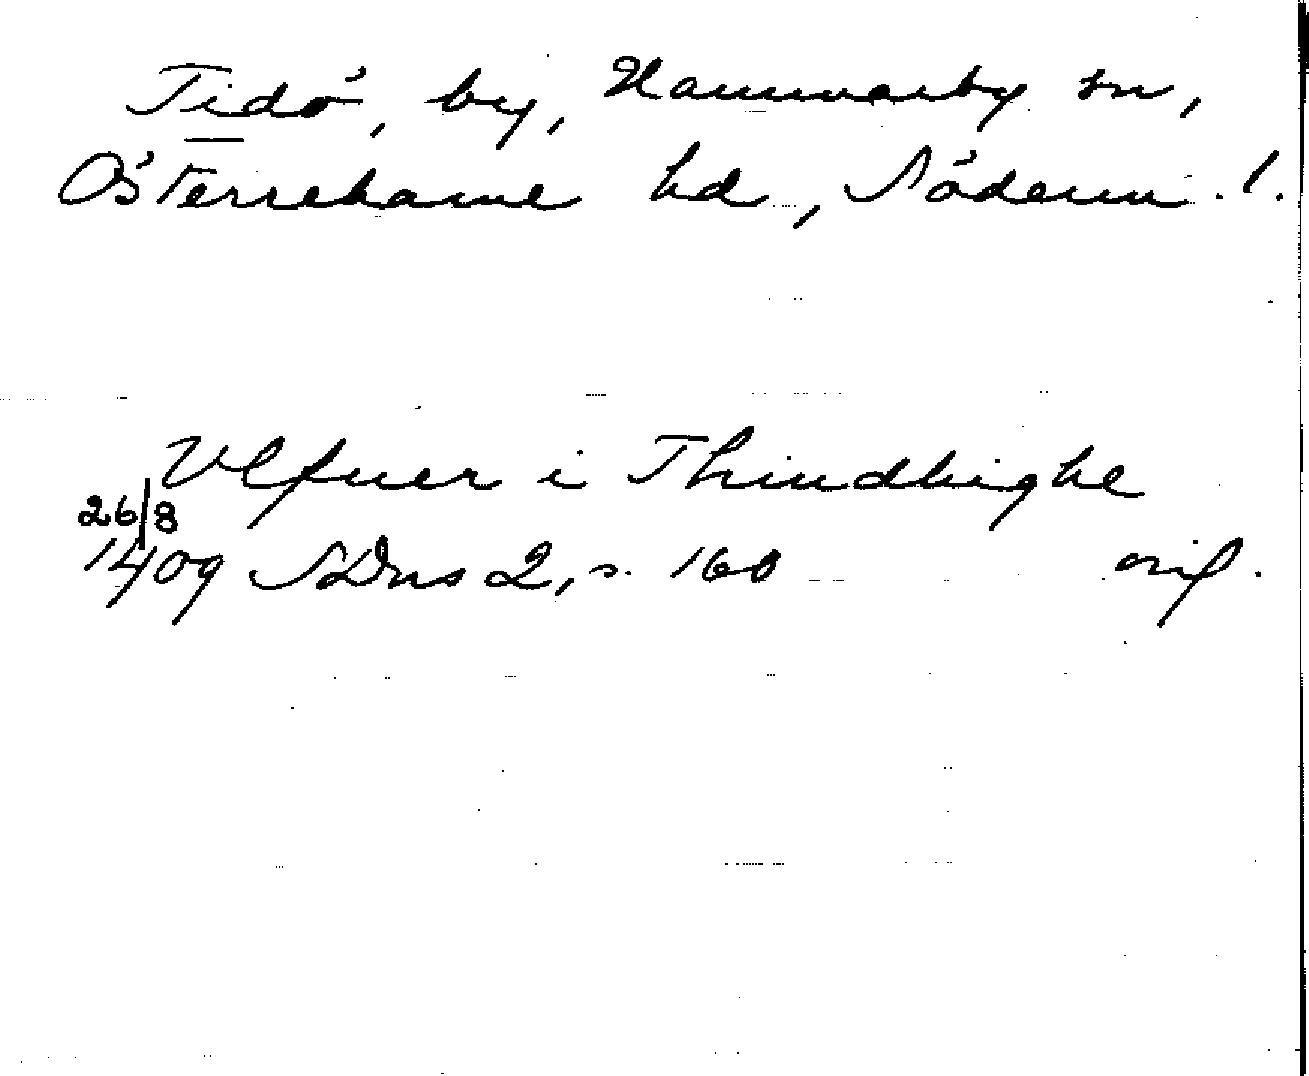 Tidö, by, Hammarby sn,
Österrekarne hd, Söderm. l.
Vlfuer i Thindhøghe
26/8
1409 SDns 2, s. 160 orig.